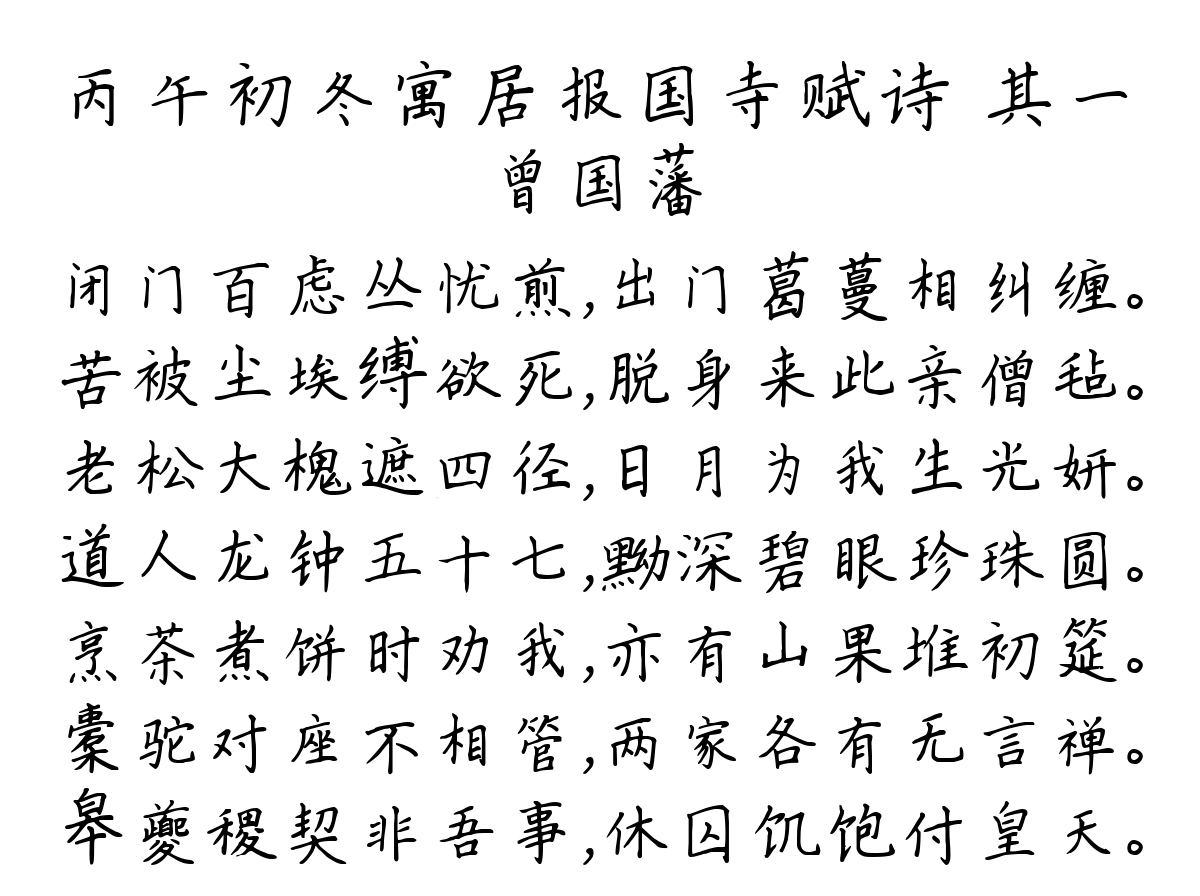 丙午初冬寓居报国寺赋诗 其一
曾国藩
闭门百虑丛忧煎,出门葛蔓相纠缠。
苦被尘埃缚欲死,脱身来此亲僧毡。
老松大槐遮四径,日月为我生光妍。
道人龙钟五十七,黝深碧眼珍珠圆。
烹茶煮饼时劝我,亦有山果堆初筵。
橐驼对座不相管,两家各有无言禅。
皋夔稷契非吾事,休囚饥饱付皇天。